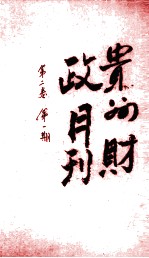 貴州財
政月刊
第二卷 第一期